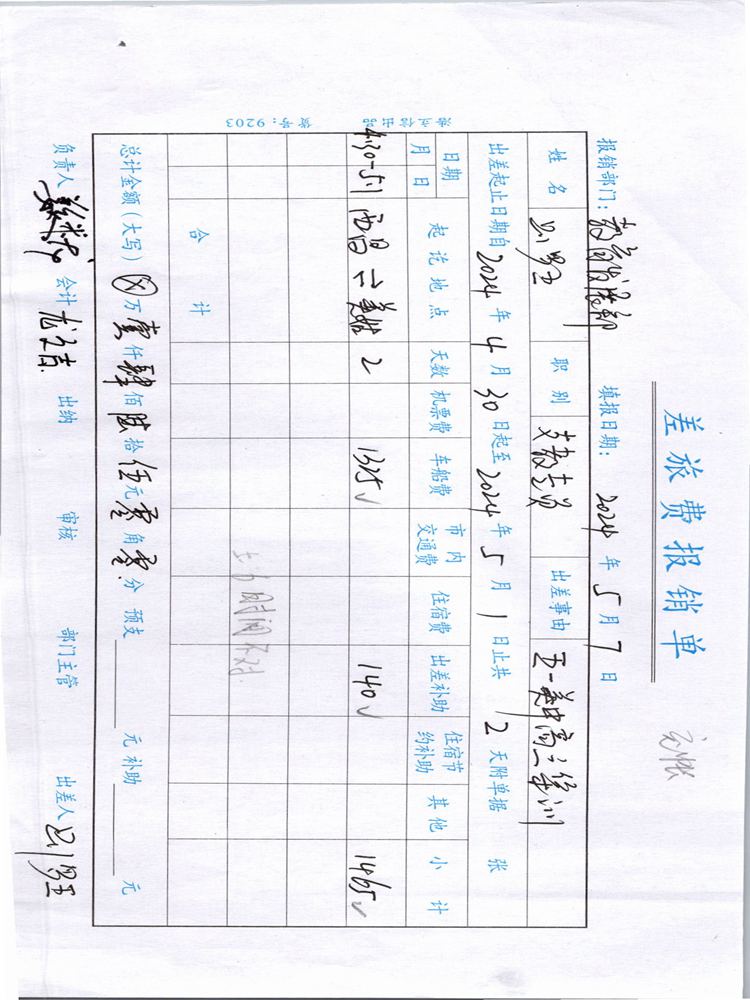 差旅费报销单
报销部门：教育发展部 填报日期：2024年5月7日
姓名 职别 支教志愿 出差事由
出差起止日期自2024年4月30日起至2024年5月1日止共2天附单据 张
日期 起讫地点 天数 机票费 车船费 市内交通费 住宿费 出差补助 住宿节约补助 其他 小计
月 日
4.30-5.1 西昌 美姑 2 1325 140 1465
合计
总计金额（大写） 万壹仟肆佰陆拾伍元零角零分 预支 元 补助 元
负责人 会计 出纳 审核 部门主管 出差人
货号：9203